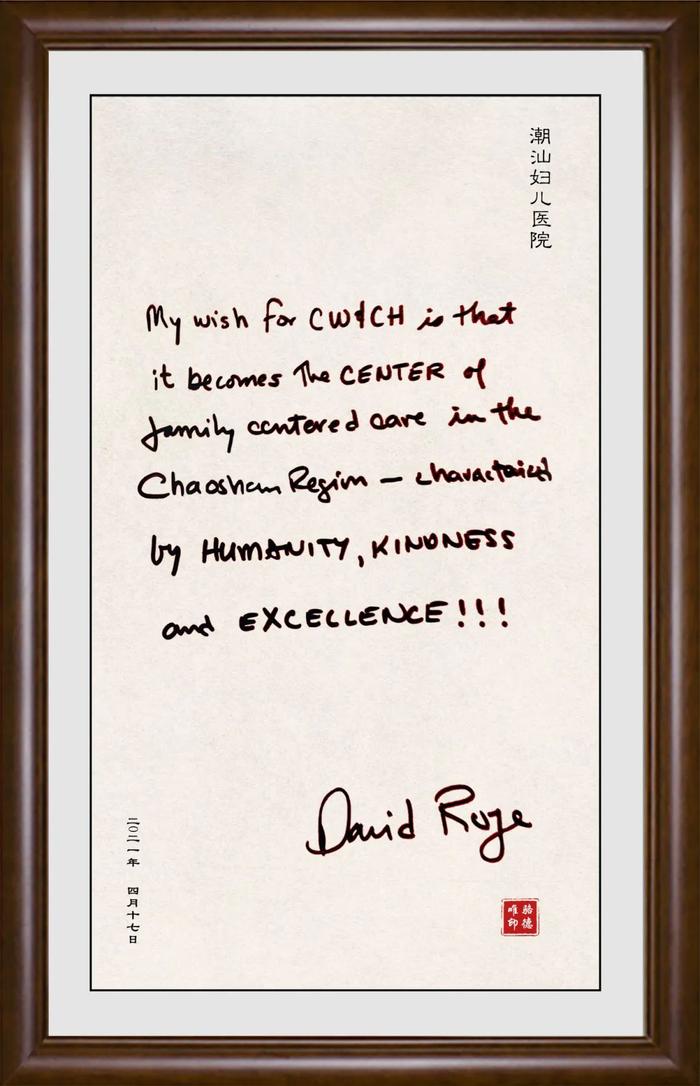 潮汕妇儿医院
My wish for CW&CH is that
it becomes The CENTER of
family centered care in the
Chaoshan Region – characterized
by HUMANITY, KINDNESS
and EXCELLENCE!!!
David Roye
二〇二一年 四月十七日
骆德唯印